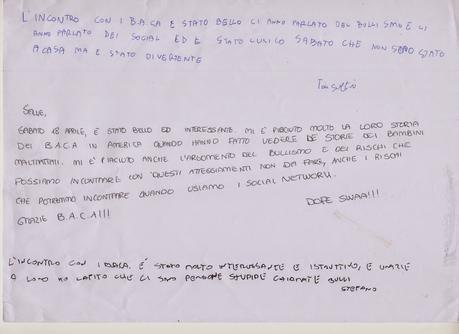 L'INCONTRO CON I B.A.C.A E STATO BELLO CI ANNO PARLATO DEL BULLISMO E CI
ANNO PARLATO DEI SOCIAL ED E STATO L'UNICO SABATO CHE NON SONO STATO
A CASA MA E STATO DIVERTENTE
SABATO 18 APRILE, È STATO BELLO ED INTERESSANTE. MI È PIACIUTO MOLTO LA LORO STORIA
DEI B.A.C.A IN AMERICA QUANDO HANNO FATTO VEDERE LE STORIE DEI BAMBINI
MALTRATTATI. MI È PIACIUTO ANCHE L'ARGOMENTO DEL BULLISMO E DEI RISCHI CHE
POSSIAMO INCONTRARE CON QUESTI ATTEGGIAMENTI NON DA FARE, ANCHE I RISCHI
CHE POTREMMO INCONTRARE QUANDO USIAMO I SOCIAL NETWORK.
GRAZIE B.A.C.A!!!
DOPE SWAA!!!
L'INCONTRO CON I BACA, È STATO MOLTO INTERESSANTE E ISTRUTTIVO, E GRAZIE
A LORO HO CAPITO CHE CI SONO PERSONE STUPIDE CHIAMATE BULLI
STEFANO